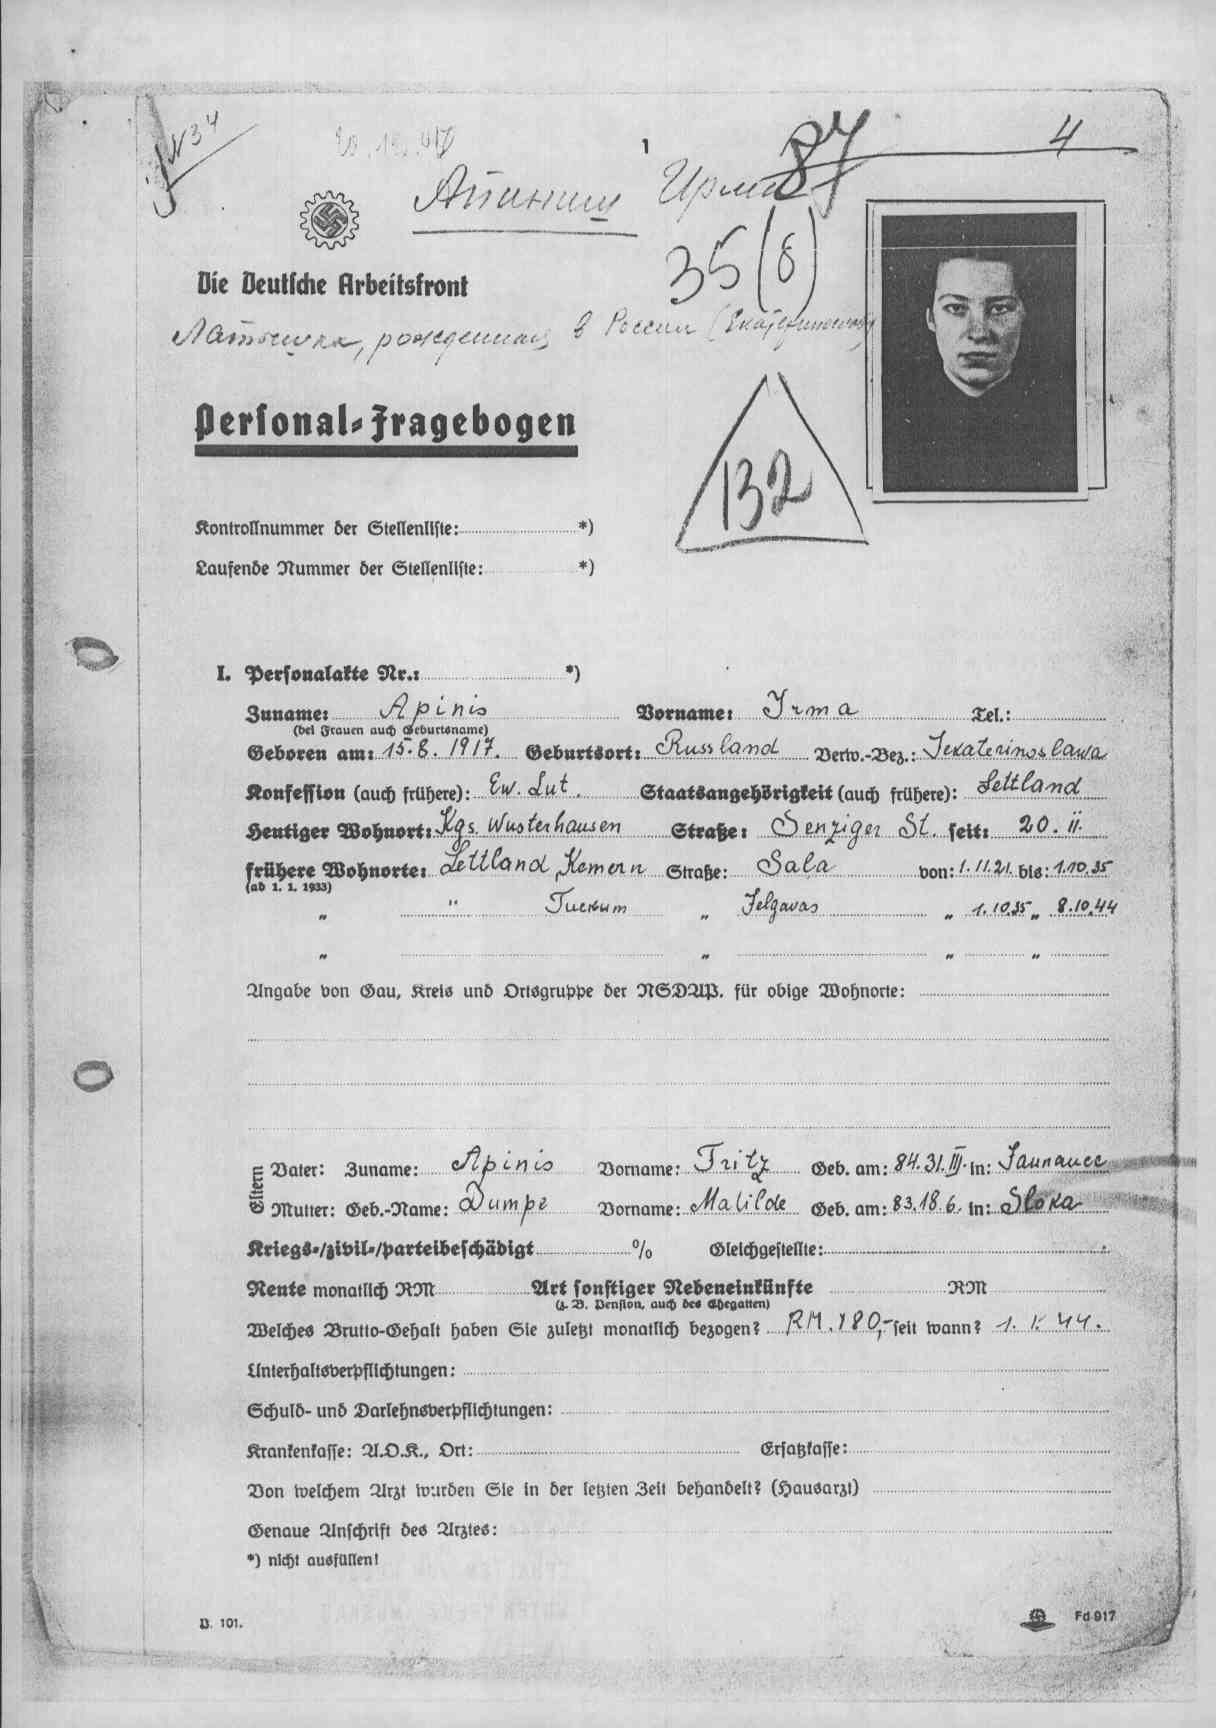 N 34
1
87
4
Апиниш Ирма
35 (8)
Die Deutsche Arbeitsfront
Латышка, рожденная в России
Personal-Fragebogen
132
Kontrollnummer der Stellenliste: *)
Laufende Nummer der Stellenliste: *)
I. Personalakte Nr.: *)
Zuname: Apinis Vorname: Irma Tel.:
(bei Frauen auch Geburtsname)
Geboren am: 15.8.1917. Geburtsort: Russland Verw.-Bez.: Jekaterinoslawa
Konfession (auch frühere): Ew. Lut. Staatsangehörigkeit (auch frühere): Lettland
Heutiger Wohnort: Kgs. Wusterhausen Straße: Senziger St. seit: 20. II.
frühere Wohnorte: Lettland, Kemern Straße: Sala von: 1.11.21. bis: 1.10.35
(ab 1. 1. 1933)
" " Tuckum " Jelgavas " 1.10.35 " 8.10.44
" " " "
Angabe von Gau, Kreis und Ortsgruppe der NSDAP. für obige Wohnorte:
Eltern
Vater: Zuname: Apinis Vorname: Fritz Geb. am: 84.31.III. in: Jaunauce
Mutter: Geb.-Name: Dumpe Vorname: Matilde Geb. am: 83.18.6. in: Sloka
Kriegs-/zivil-/parteibeschädigt % Gleichgestellte:
Rente monatlich RM Art sonstiger Nebeneinkünfte RM
(z. B. Pension, auch des Ehegatten)
Welches Brutto-Gehalt haben Sie zuletzt monatlich bezogen? RM. 180,- seit wann? 1. I. 44.
Unterhaltsverpflichtungen:
Schuld- und Darlehnsverpflichtungen:
Krankenkasse: A.O.K., Ort: Ersatzkasse:
Von welchem Arzt wurden Sie in der letzten Zeit behandelt? (Hausarzt)
Genaue Anschrift des Arztes:
*) nicht ausfüllen!
D. 101.
Fd 917